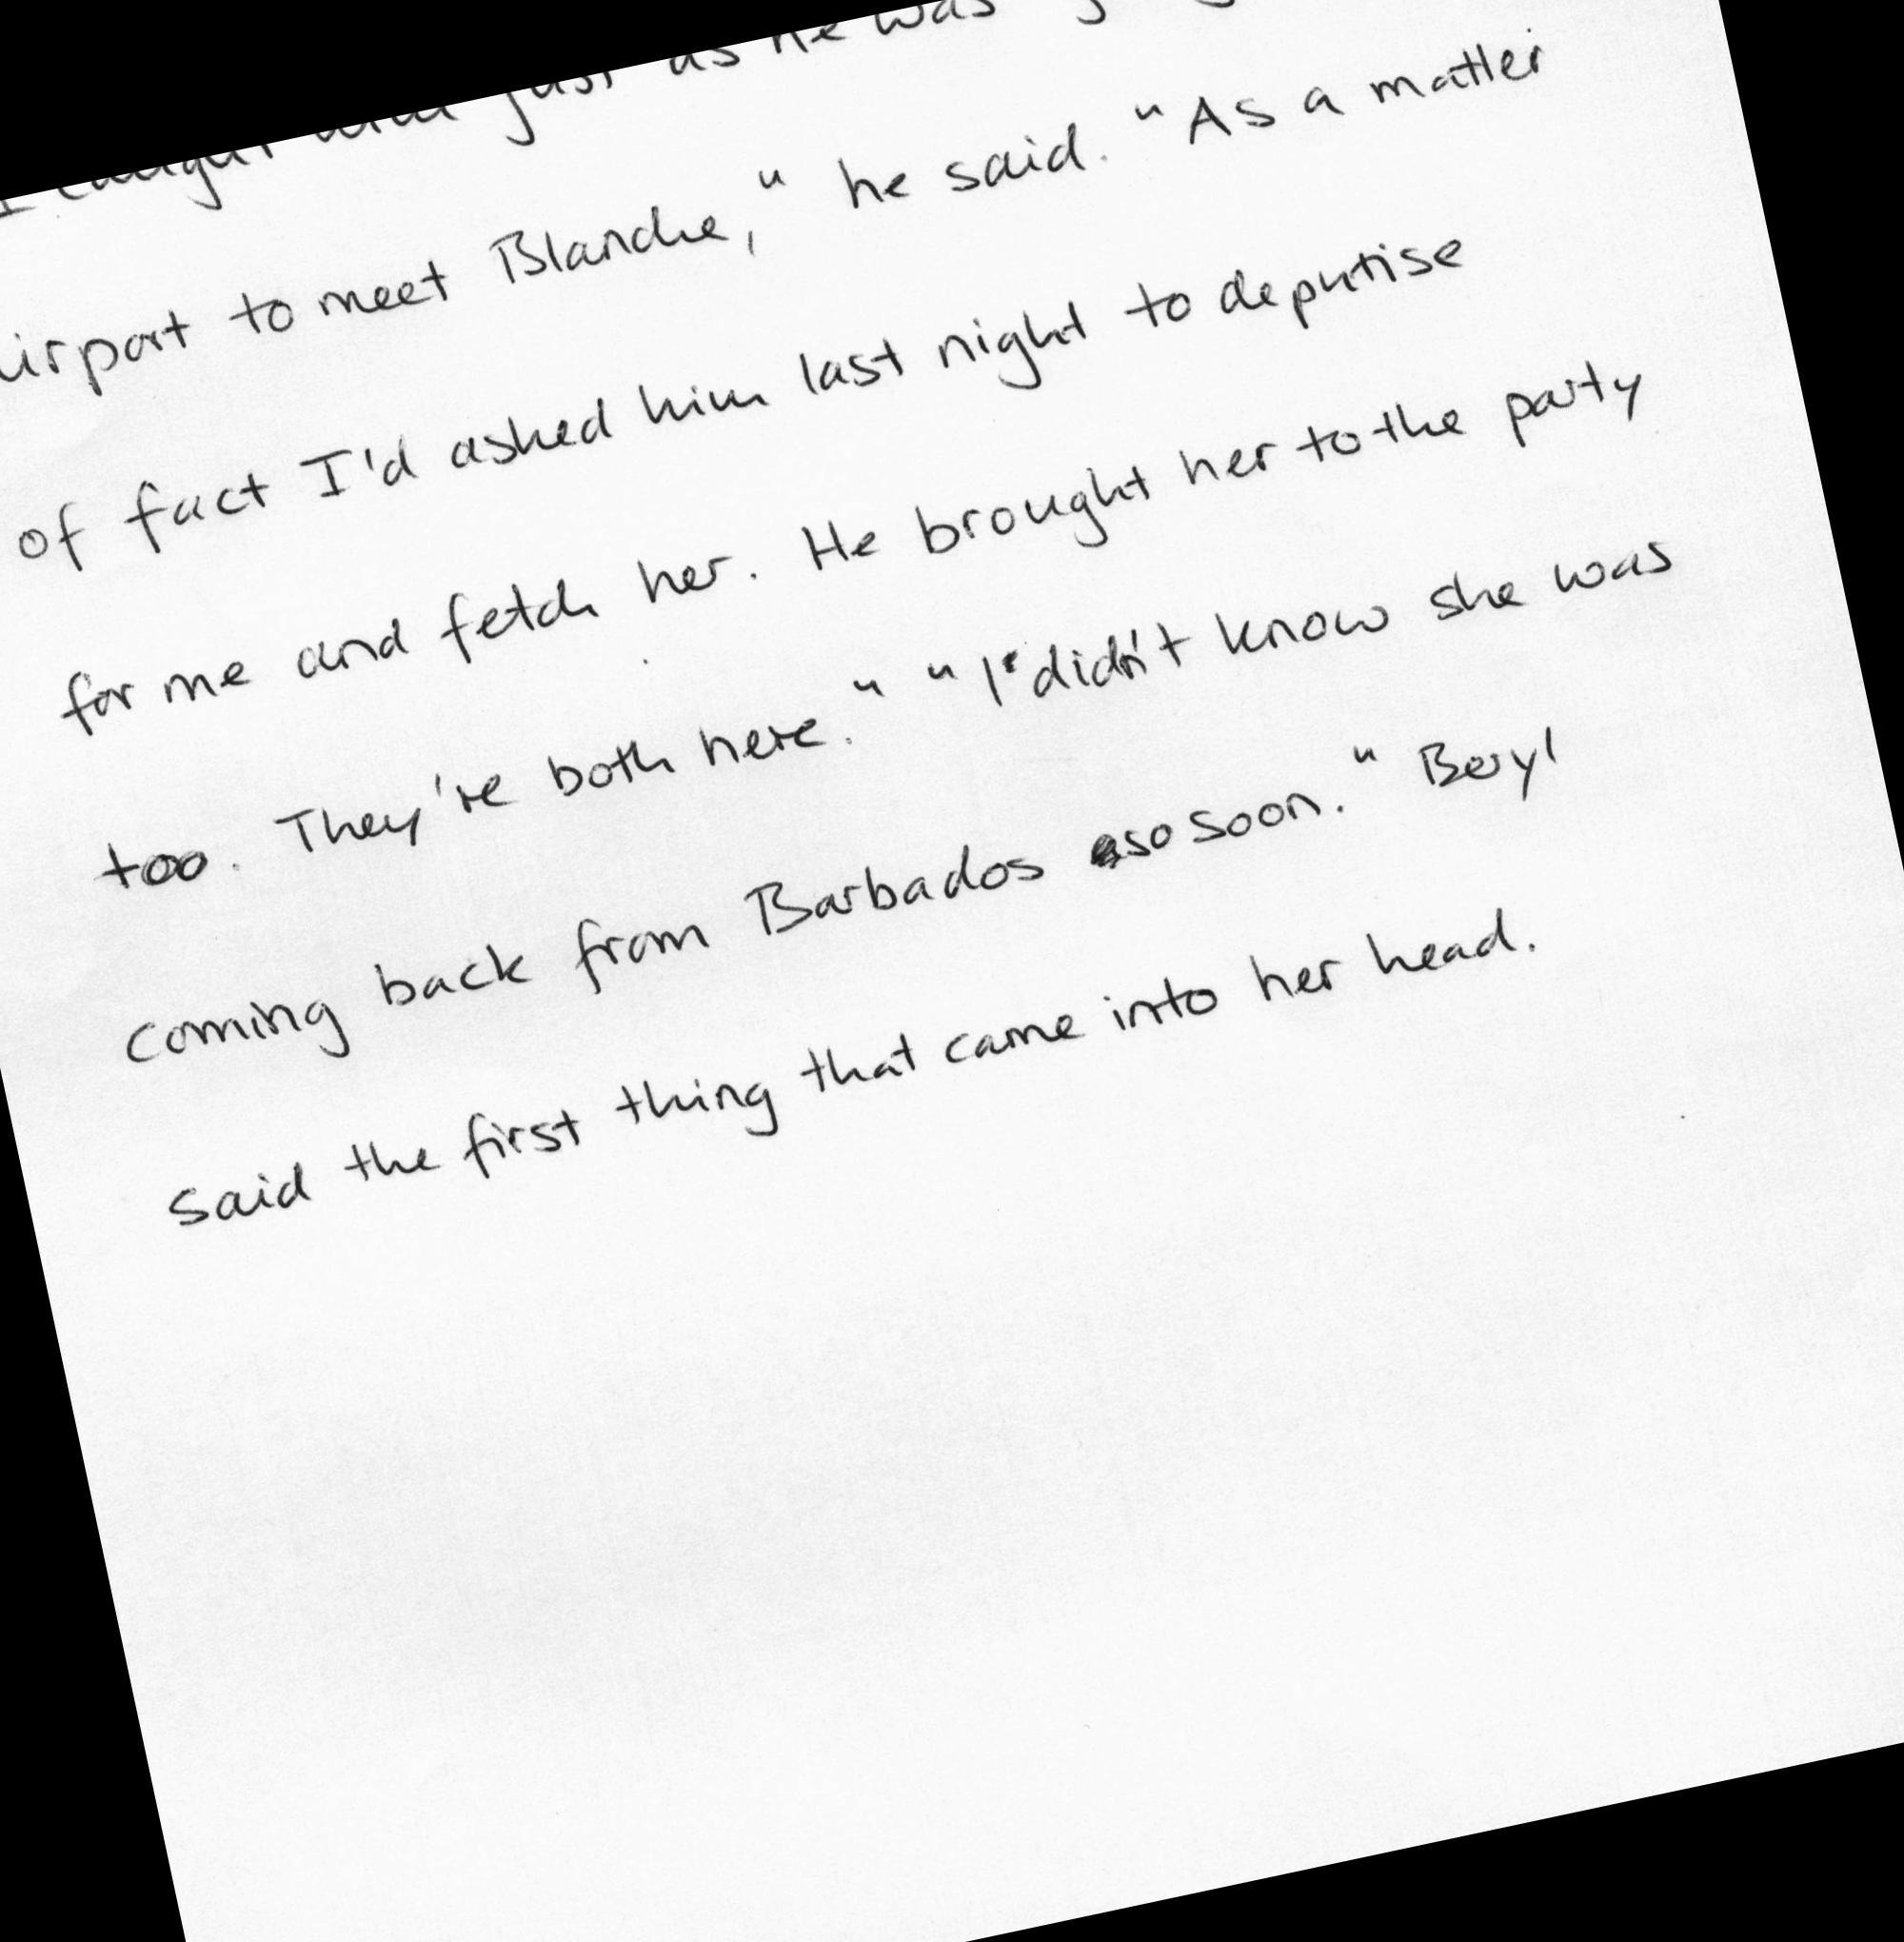 I caught and just as he was
airport to meet Blanche," he said. "As a matter
of fact I'd asked him last night to deputise
for me and fetch her. He brought her to the party
too. They're both here." "I didn't know she was
coming back from Barbados so soon." Beryl
said the first thing that came into her head.